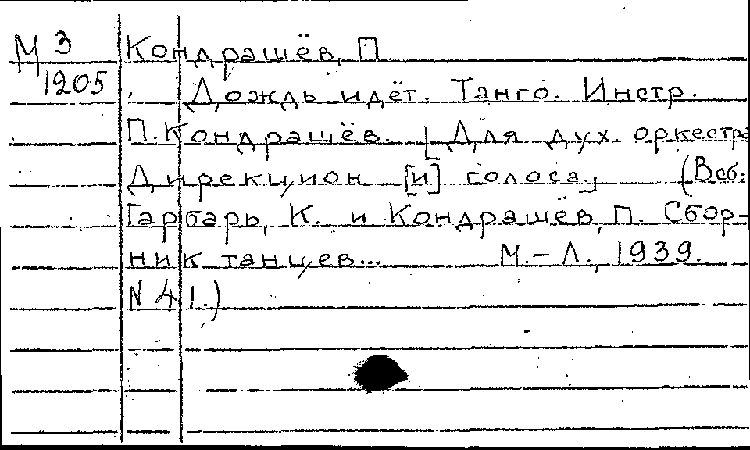 М 3 Кондрашёв, П
1205 Дождь идёт. Танго. Инстр.
П. Кондрашёв. [Для дух. оркестра
Дирекцион [и] голоса] (В сб:
Гарбарь, К. и Кондрашёв, П. Сбор-
ник танцев... М.-Л., 1939.
N 41.)